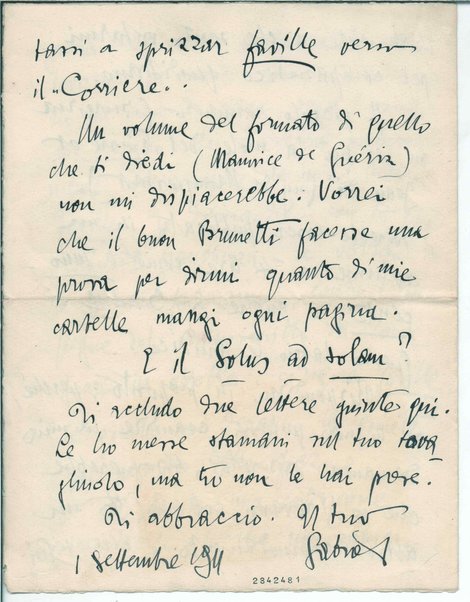 tarsi a sprizzar faville verso
il "Corriere..
Un volume del formato di quello
che ti diedi (Maurice de Guérin)
non mi dispiacerebbe. Vorrei
che il buon Brunetti facesse una
prova per dirmi quanto di mie
cartelle mangi ogni pagina.
E il Solus ad solam?
Ti accludo due lettere giunte qui.
Le ho messe stamani sul tuo tava
gliuolo, ma tu non le hai prese.
Ti abbraccio. Il tuo
1 Settembre 1911
2842481